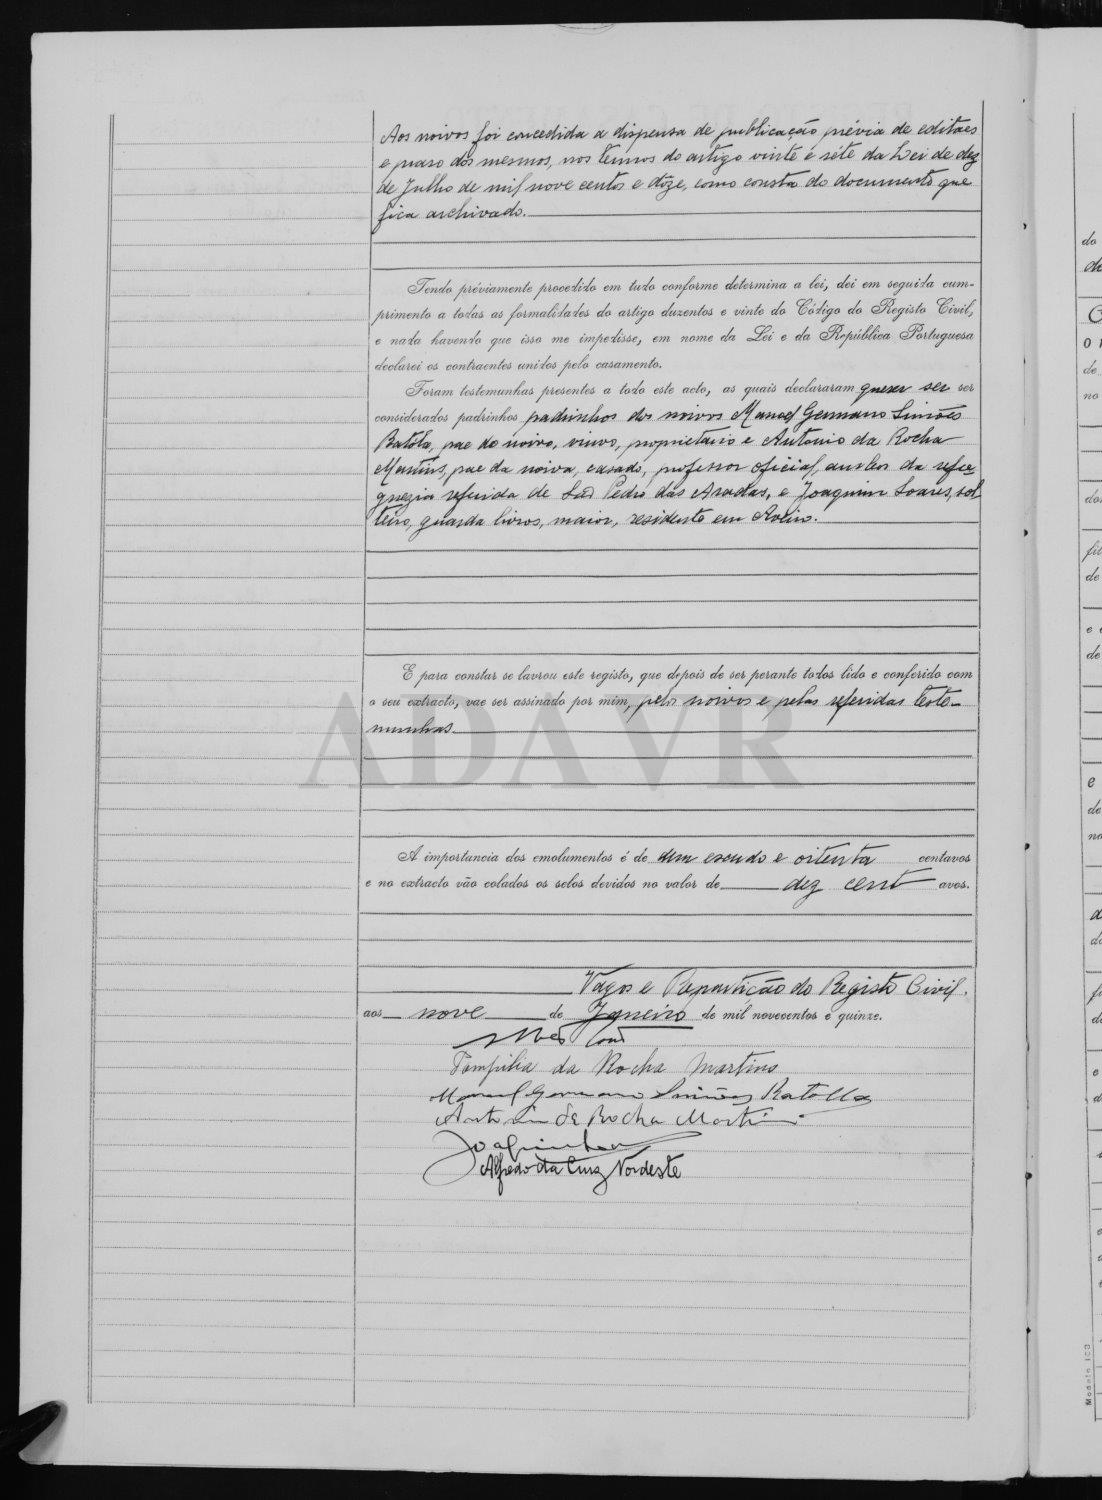 Aos noivos foi concedida a dispensa de publicação prévia de editaes
e praso dos mesmos, nos termos do artigo vinte e séte da Lei de dez
de Julho de mil nove centos e dôze, como consta do documento que
fica archivado.
Tendo préviamente procedido em tudo conforme determina a lei, dei em seguida cum-
primento a todas as formalidades do artigo duzentos e vinte do Código do Registo Civil,
e nada havendo que isso me impedisse, em nome da Lei e da República Portuguesa
declarei os contraentes unidos pelo casamento.
Foram testemunhas presentes a todo este acto, as quais declararam querer ser ser
considerados padrinhos padrinhos dos noivos Manoel Germano Simões
Ratóla, pae do noivo, viuvo, proprietario e Antonio da Rocha
Martins, pae da noiva, casado, professor oficial, ambos da refre-
guezia referida de São Pedro das Aradas, e Joaquim Soares, sol-
teiro, guarda livros, maior, residente em Aveiro.
E para constar se lavrou este registo, que depois de ser perante todos lido e conferido com
o seu extracto, vae ser assinado por mim, pelos noivos e pelas referidas teste-
munhas.
ADAVR
A importancia dos emolumentos é de um escudo e oitenta centavos
e no extracto vão colados os selos devidos no valor de dez cent avos.
Vagos e Repartição do Registo Civil.
aos nove de Janeiro de mil novecentos e quinze.
Pompilia da Rocha Martins
Manuel Germano Simões Ratolla
Antonio da Rocha Martins
Alfredo da Cruz Nordeste
do
de
no
Modelo 103